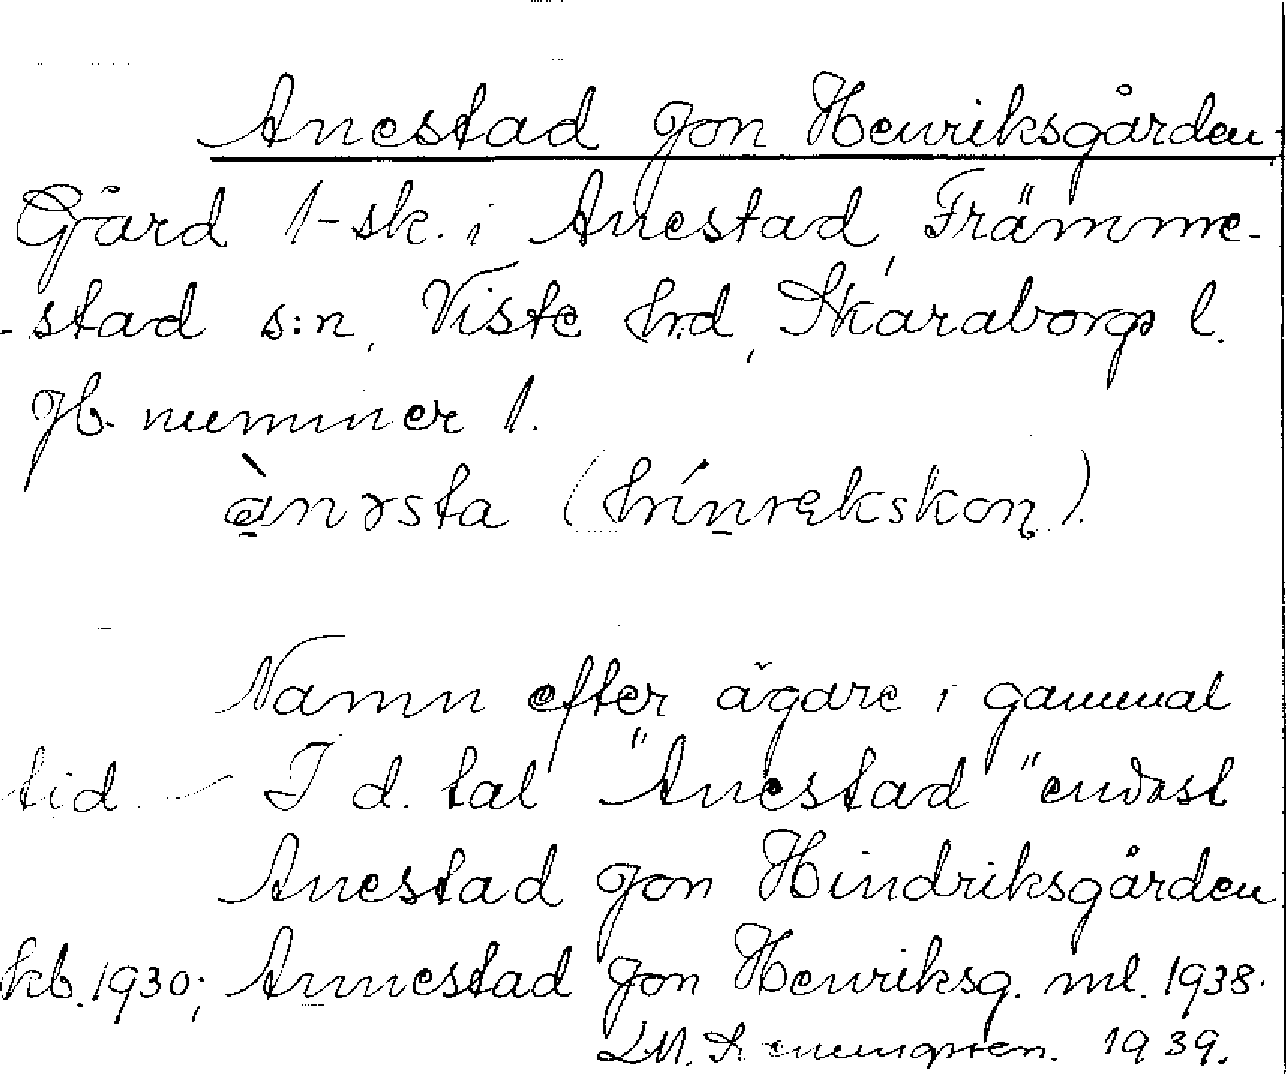 Anestad Jon Henriksgården
Gård 1-sk. i Anestad, Främme-
-stad s:n, Viste hrd, Skaraborgs l.
Jb. nummer 1.
ànɤsta (hínrękskoɳ).
Namn efter ägare i gammal
tid. – I d. tal "Anestad" endast
Anestad Jon Hindriksgården
kb. 1930; Annestad Jon Henriksg. ml. 1938.
1939.